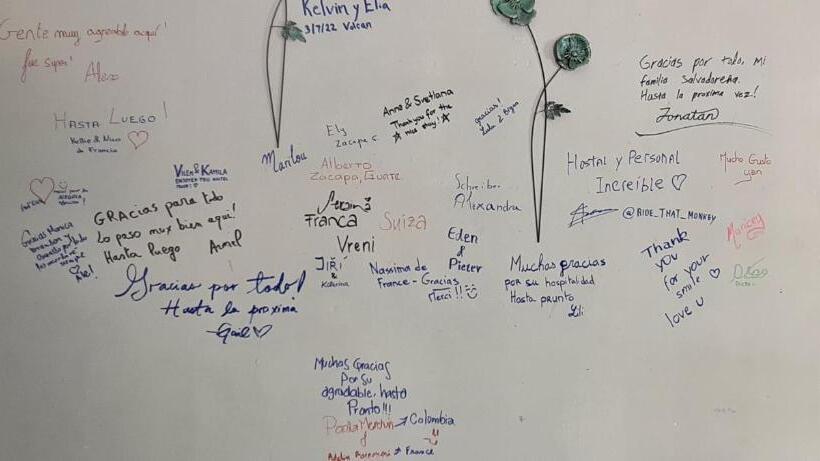 Kelvin y Elia
3/7/22 Volcan
Gente muy agreable aquí!
fue super!
Alex
Gracias por todo, mi
familia Salvadoreña.
Hasta la proxima vez!
Jonatan
HASTA LUEGO!
Kellie & Nico
de Francia
Anne & Svetlana
Thank you for the
nice stay!
gracias!
Ely
Zacapa
Marilou
Alberto
Zacapa, Guate.
VILEM & KAMILA
Hostal y Personal
Increíble
@RIDE_THAT_MONKEY
Mucho Gusto
Schreiber
Alexandra
GRACias para todo
Lo paso muy bien aquí!
Hasta luego
Gracias Monica
siempre
Franca
Suiza
Vreni
Eden
&
Pieter
JIŘÍ
&
Kateřina
Nassima de
France - Gracias
Merci!!
Muchas gracias
por su hospitalidad
Hasta prunto
Lili
Thank
you
for your
smile
love u
Gracias por todo!
Hasta la proxima
Gail
Muchas Gracias
Por Su
agradable, hasta
Pronto!!!
Colombia
France